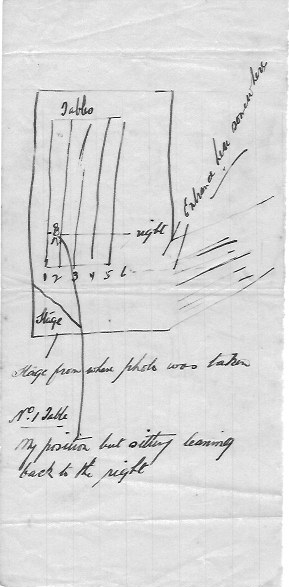 Tables
Entrance here somewhere
right
1 2 3 4 5 6
Stage
Stage from where photo was taken
No. 1 Table
My position but sitting leaning
back to the right